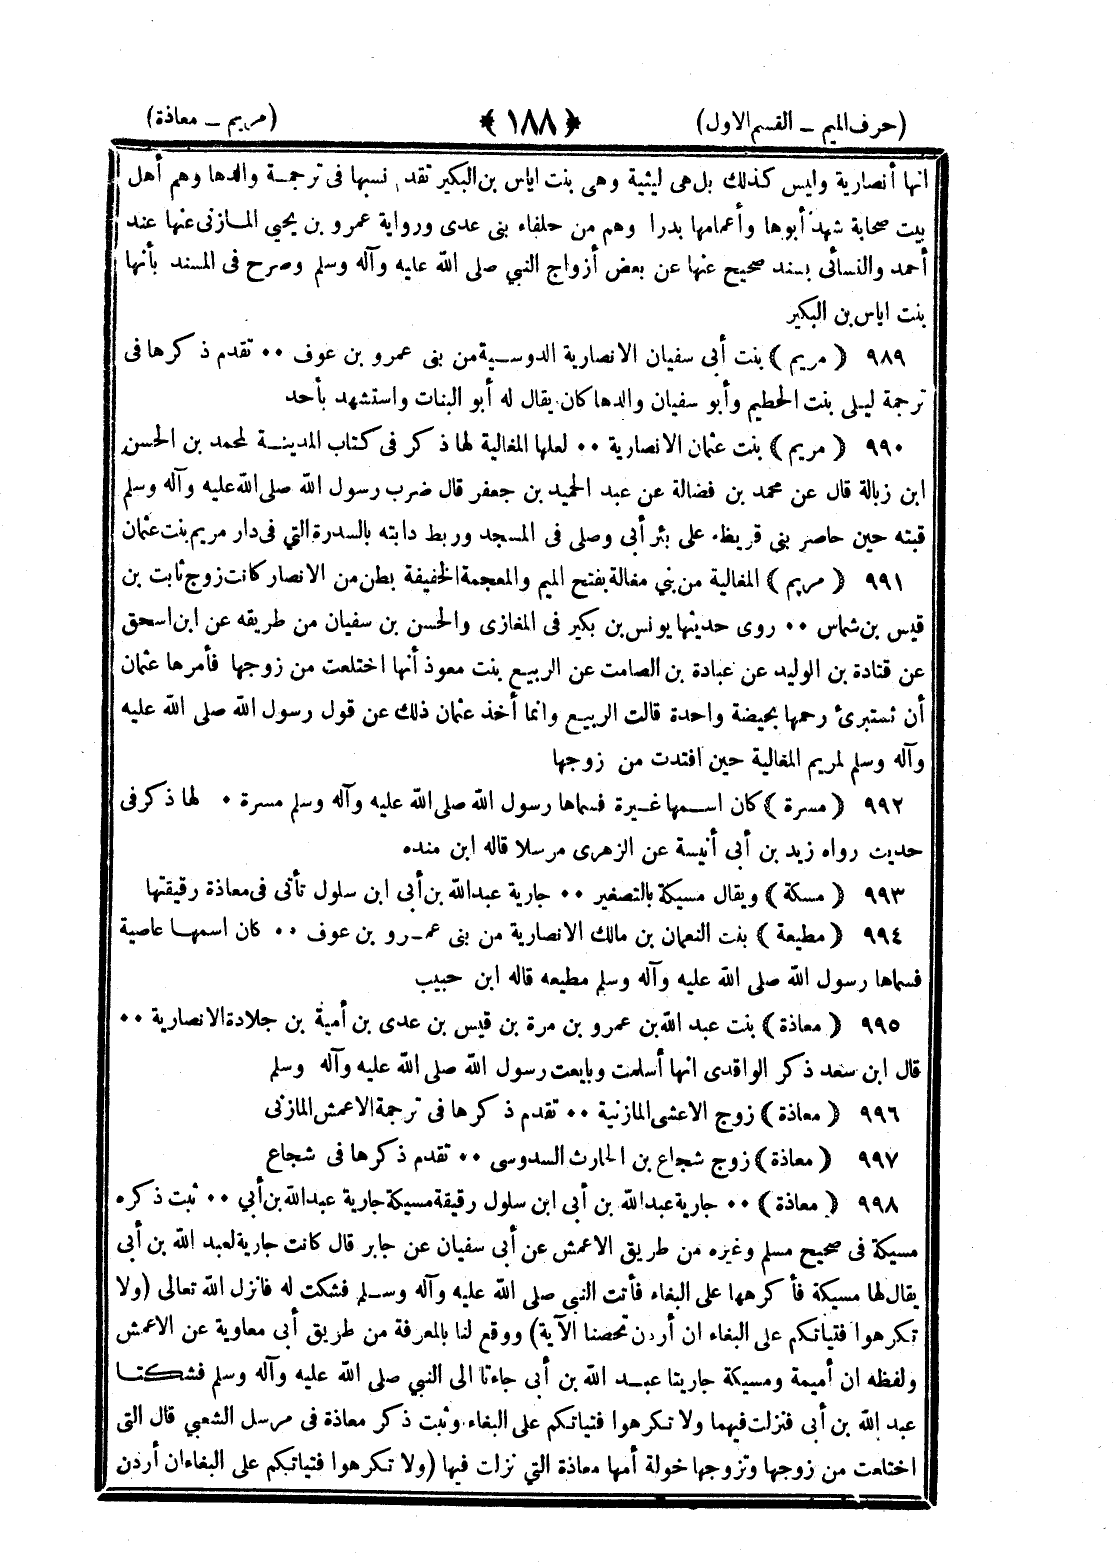 (حرف الميم ـ القسم الاول) ﴿ ١٨٨ ﴾ (مريم ـ معاذة)
انها أنصارية وليس كذلك بل هى ليثية وهى بنت اياس بن البكير تقدم نسبها فى ترجمة والدها وهم أهل
بيت صحابة شهد أبوها وأعمامها بدرا وهم من حلفاء بنى عدى ورواية عمرو بن يحيى المازنى عنها عند
أحمد والنسائى بسند صحيح عنها عن بعض أزواج النبي صلى الله عليه وآله وسلم وصرح فى المسند بأنها
بنت اياس بن البكير
٩٨٩ ( مريم ) بنت أبى سفيان الانصارية الدوسية من بنى عمرو بن عوف ٠٠ تقدم ذكرها فى
ترجمة ليلى بنت الخطيم وأبو سفيان والدها كان يقال له أبو البنات واستشهد بأحد
٩٩٠ ( مريم ) بنت عثمان الانصارية ٠٠ لعلها المغالية لها ذكر فى كتاب المدينة لمحمد بن الحسن
ابن زبالة قال عن محمد بن فضالة عن عبد الحميد بن جعفر قال ضرب رسول الله صلى الله عليه وآله وسلم
قبته حين حاصر بنى قريظة على بئر أبى وصلى فى المسجد وربط دابته بالسدرة التي فى دار مريم بنت عثمان
٩٩١ ( مريم ) المغالية من بني مغالة بفتح الميم والمعجمة الخفيفة بطن من الانصار كانت زوج ثابت بن
قيس بن شماس ٠٠ روى حديثها يونس بن بكير فى المغازى والحسن بن سفيان من طريقه عن ابن اسحق
عن قتادة بن الوليد عن عبادة بن الصامت عن الربيع بنت معوذ أنها اختلعت من زوجها فأمرها عثمان
أن تستبرئ رحمها بحيضة واحدة قالت الربيع وانما أخذ عثمان ذلك عن قول رسول الله صلى الله عليه
وآله وسلم لمريم المغالية حين افتدت من زوجها
٩٩٢ ( مسرة ) كان اسمها غيرة فسماها رسول الله صلى الله عليه وآله وسلم مسرة ٠ لها ذكر فى
حديث رواه زيد بن أبى أنيسة عن الزهرى مرسلا قاله ابن منده
٩٩٣ ( مسكة ) ويقال مسيكة بالتصغير ٠٠ جارية عبدالله بن أبى ابن سلول تأتى فى معاذة رقيقتها
٩٩٤ ( مطيعة ) بنت النعمان بن مالك الانصارية من بنى عمرو بن عوف ٠٠ كان اسمها عاصية
فسماها رسول الله صلى الله عليه وآله وسلم مطيعه قاله ابن حبيب
٩٩٥ ( معاذة ) بنت عبد الله بن عمرو بن مرة بن قيس بن عدى بن أمية بن جلادة الانصارية ٠٠
قال ابن سعد ذكر الواقدى انها أسلمت وبايعت رسول الله صلى الله عليه وآله وسلم
٩٩٦ ( معاذة ) زوج الاعشى المازنية ٠٠ تقدم ذكرها فى ترجمة الاعمش المازنى
٩٩٧ ( معاذة ) زوج شجاع بن الحارث السدوسى ٠٠ تقدم ذكرها فى شجاع
٩٩٨ ( معاذة ) ٠٠ جارية عبدالله بن أبى ابن سلول رقيقة مسيكة جارية عبدالله بن أبي ٠٠ ثبت ذكره
مسيكة فى صحيح مسلم وغيره من طريق الاعمش عن أبى سفيان عن جابر قال كانت جارية لعبد الله بن أبى
يقال لها مسيكة فأكرهها على البغاء فأتت النبي صلى الله عليه وآله وسلم فشكت له فانزل الله تعالى (ولا
تكرهوا فتياتكم على البغاء ان أردن تحصنا الآية) ووقع لنا بالمعرفة من طريق أبى معاوية عن الاعمش
ولفظه ان أميمة ومسيكة جاريتا عبد الله بن أبى جاءتا الى النبي صلى الله عليه وآله وسلم فشكتا
عبد الله بن أبى فنزلت فيهما ولا تكرهوا فتياتكم على البغاء وثبت ذكر معاذة فى مرسل الشعبي قال التى
اختلعت من زوجها وتزوجها خولة أمها معاذة التي نزلت فيها (ولا تكرهوا فتياتكم على البغاء ان أردن